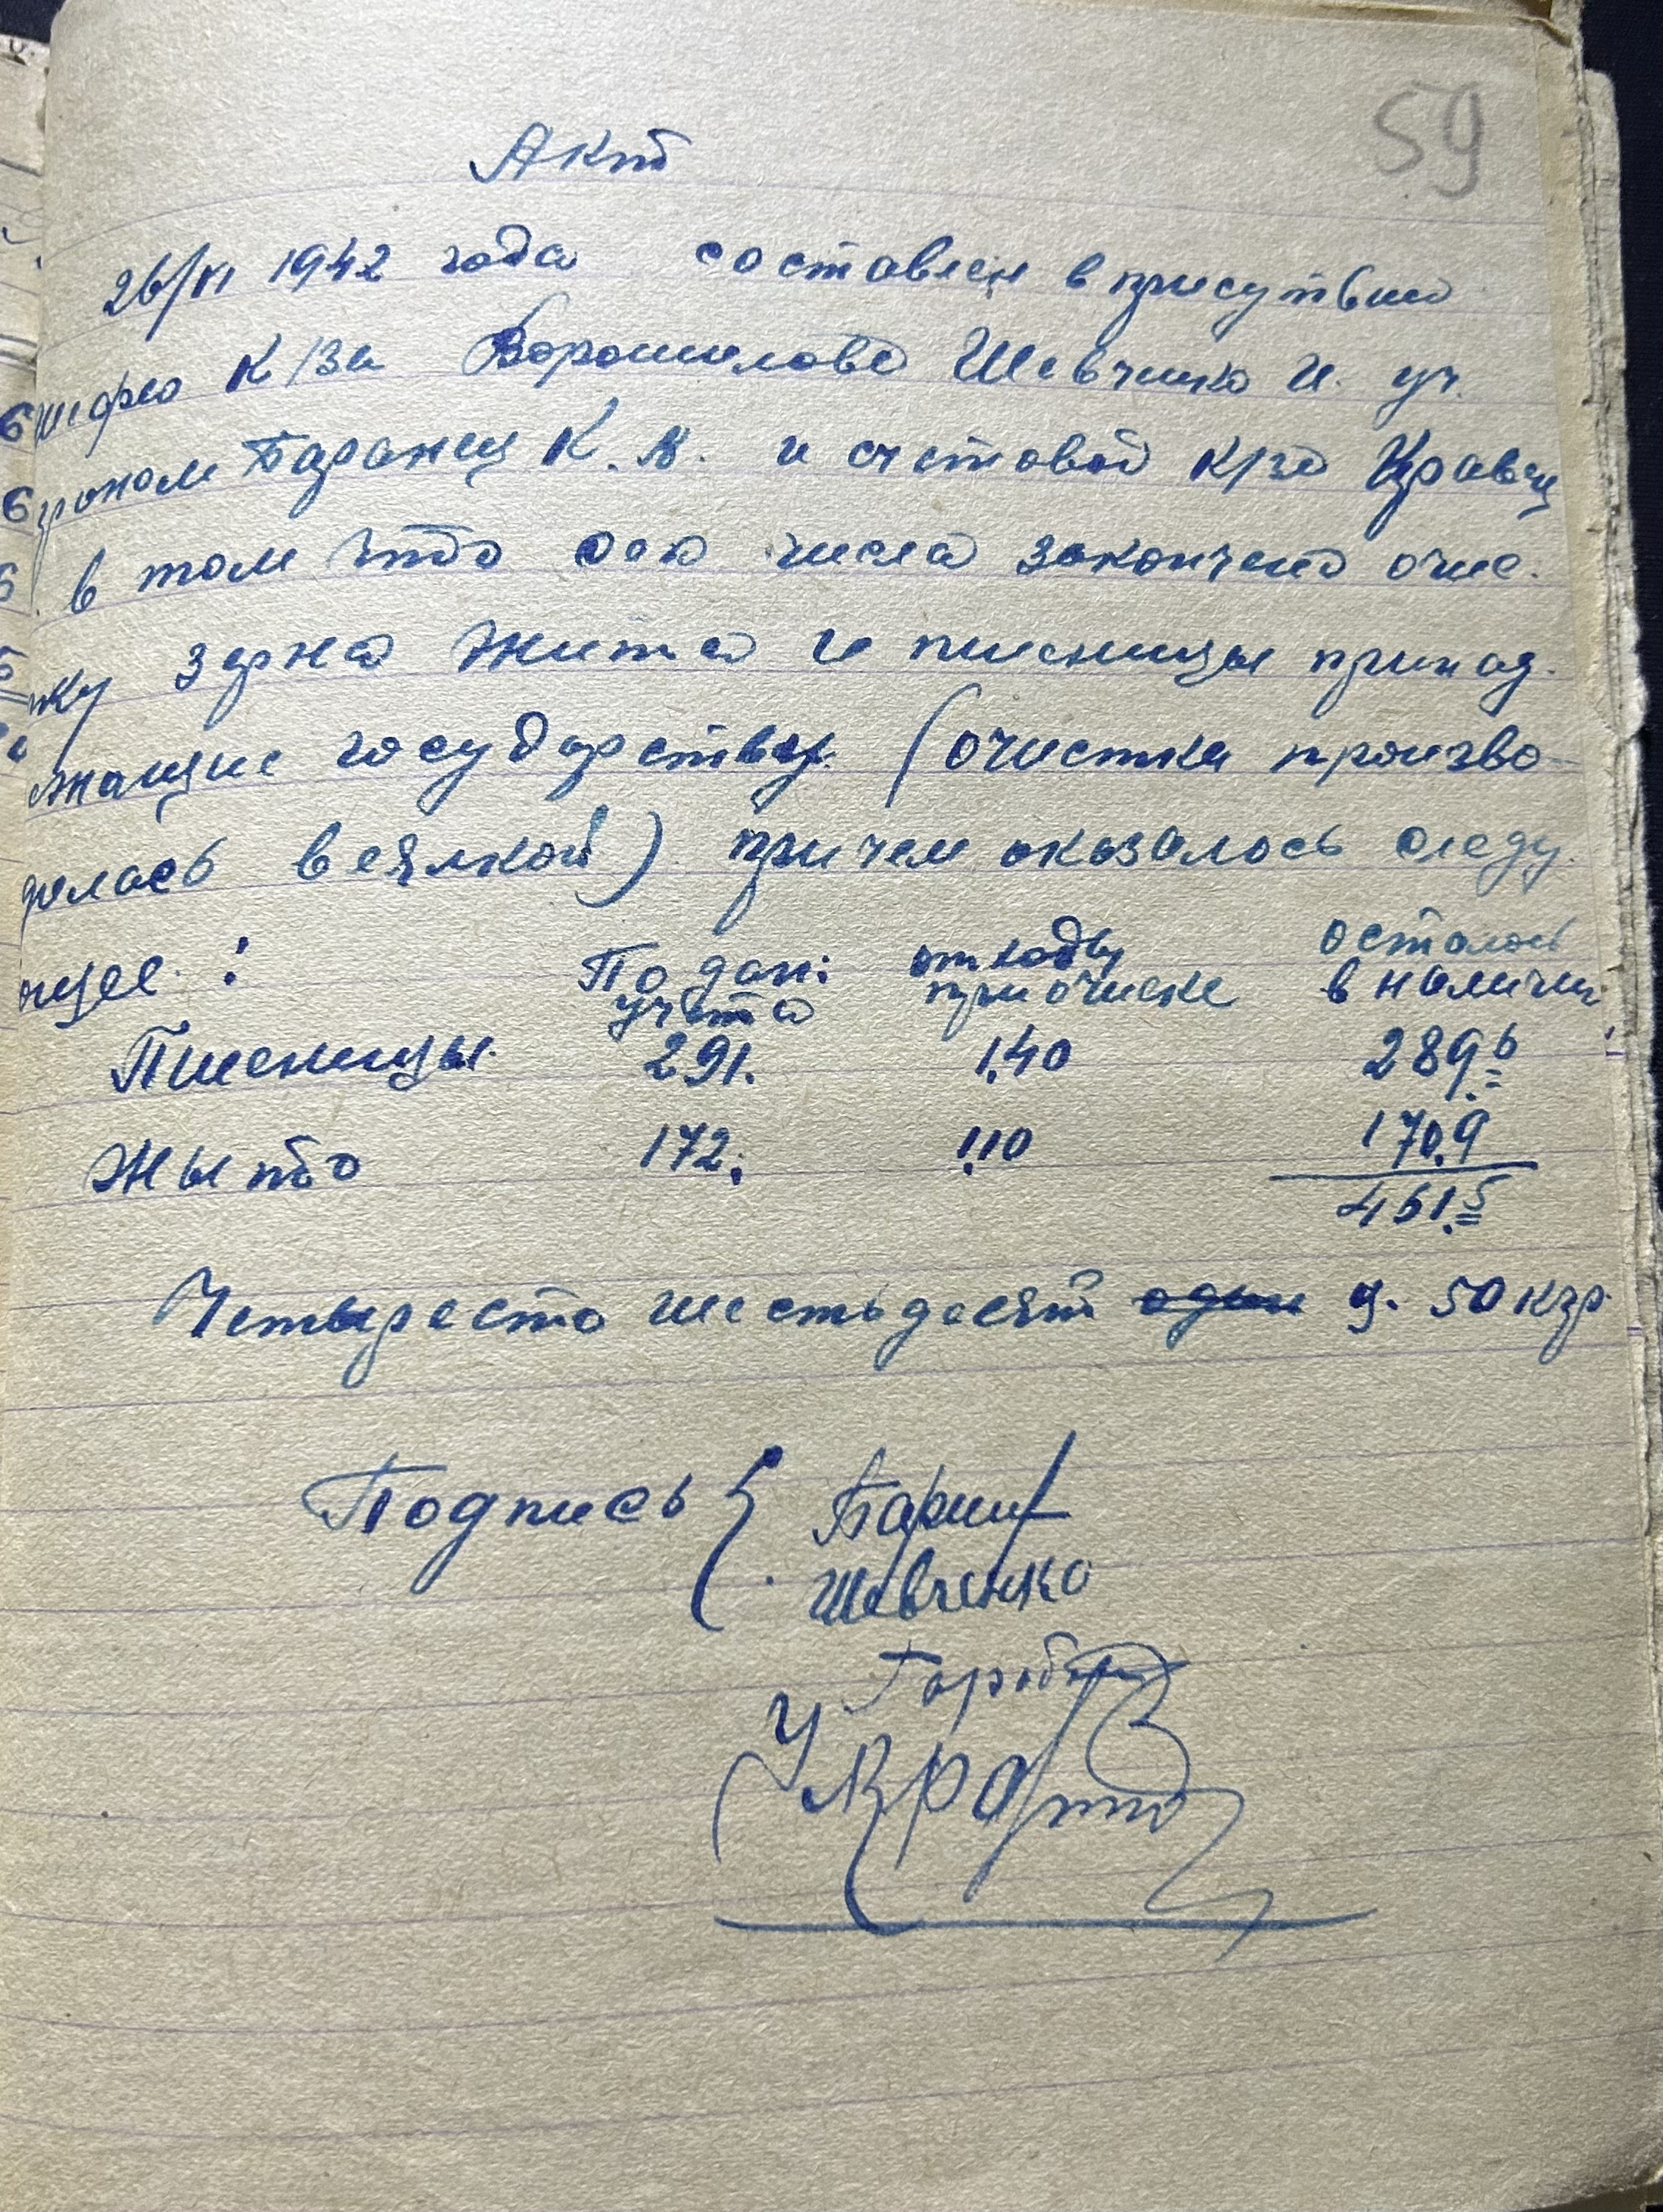 59
Актъ
26/XI 1942 года составлен в присутвии
шефа к/за Ворошилова Шевченко И. уч.
гроном Баранец К. М. и счетовод к/за Кравец
в том что сего числа закончено очис.
тку зерна жита и пшеницы принад.
лежащие государству (очистка произво-
делась веялкой) причем оказалось следу.
ющее: По дан: отходы осталось
учёта при очиске в наличии
Пшеницы 291. 1.40 289.6
Жыто 172. 1.10 170.9
461.5
Четыресто шестьдесят один ц. 50 кгр.
Подпись
Шевченко